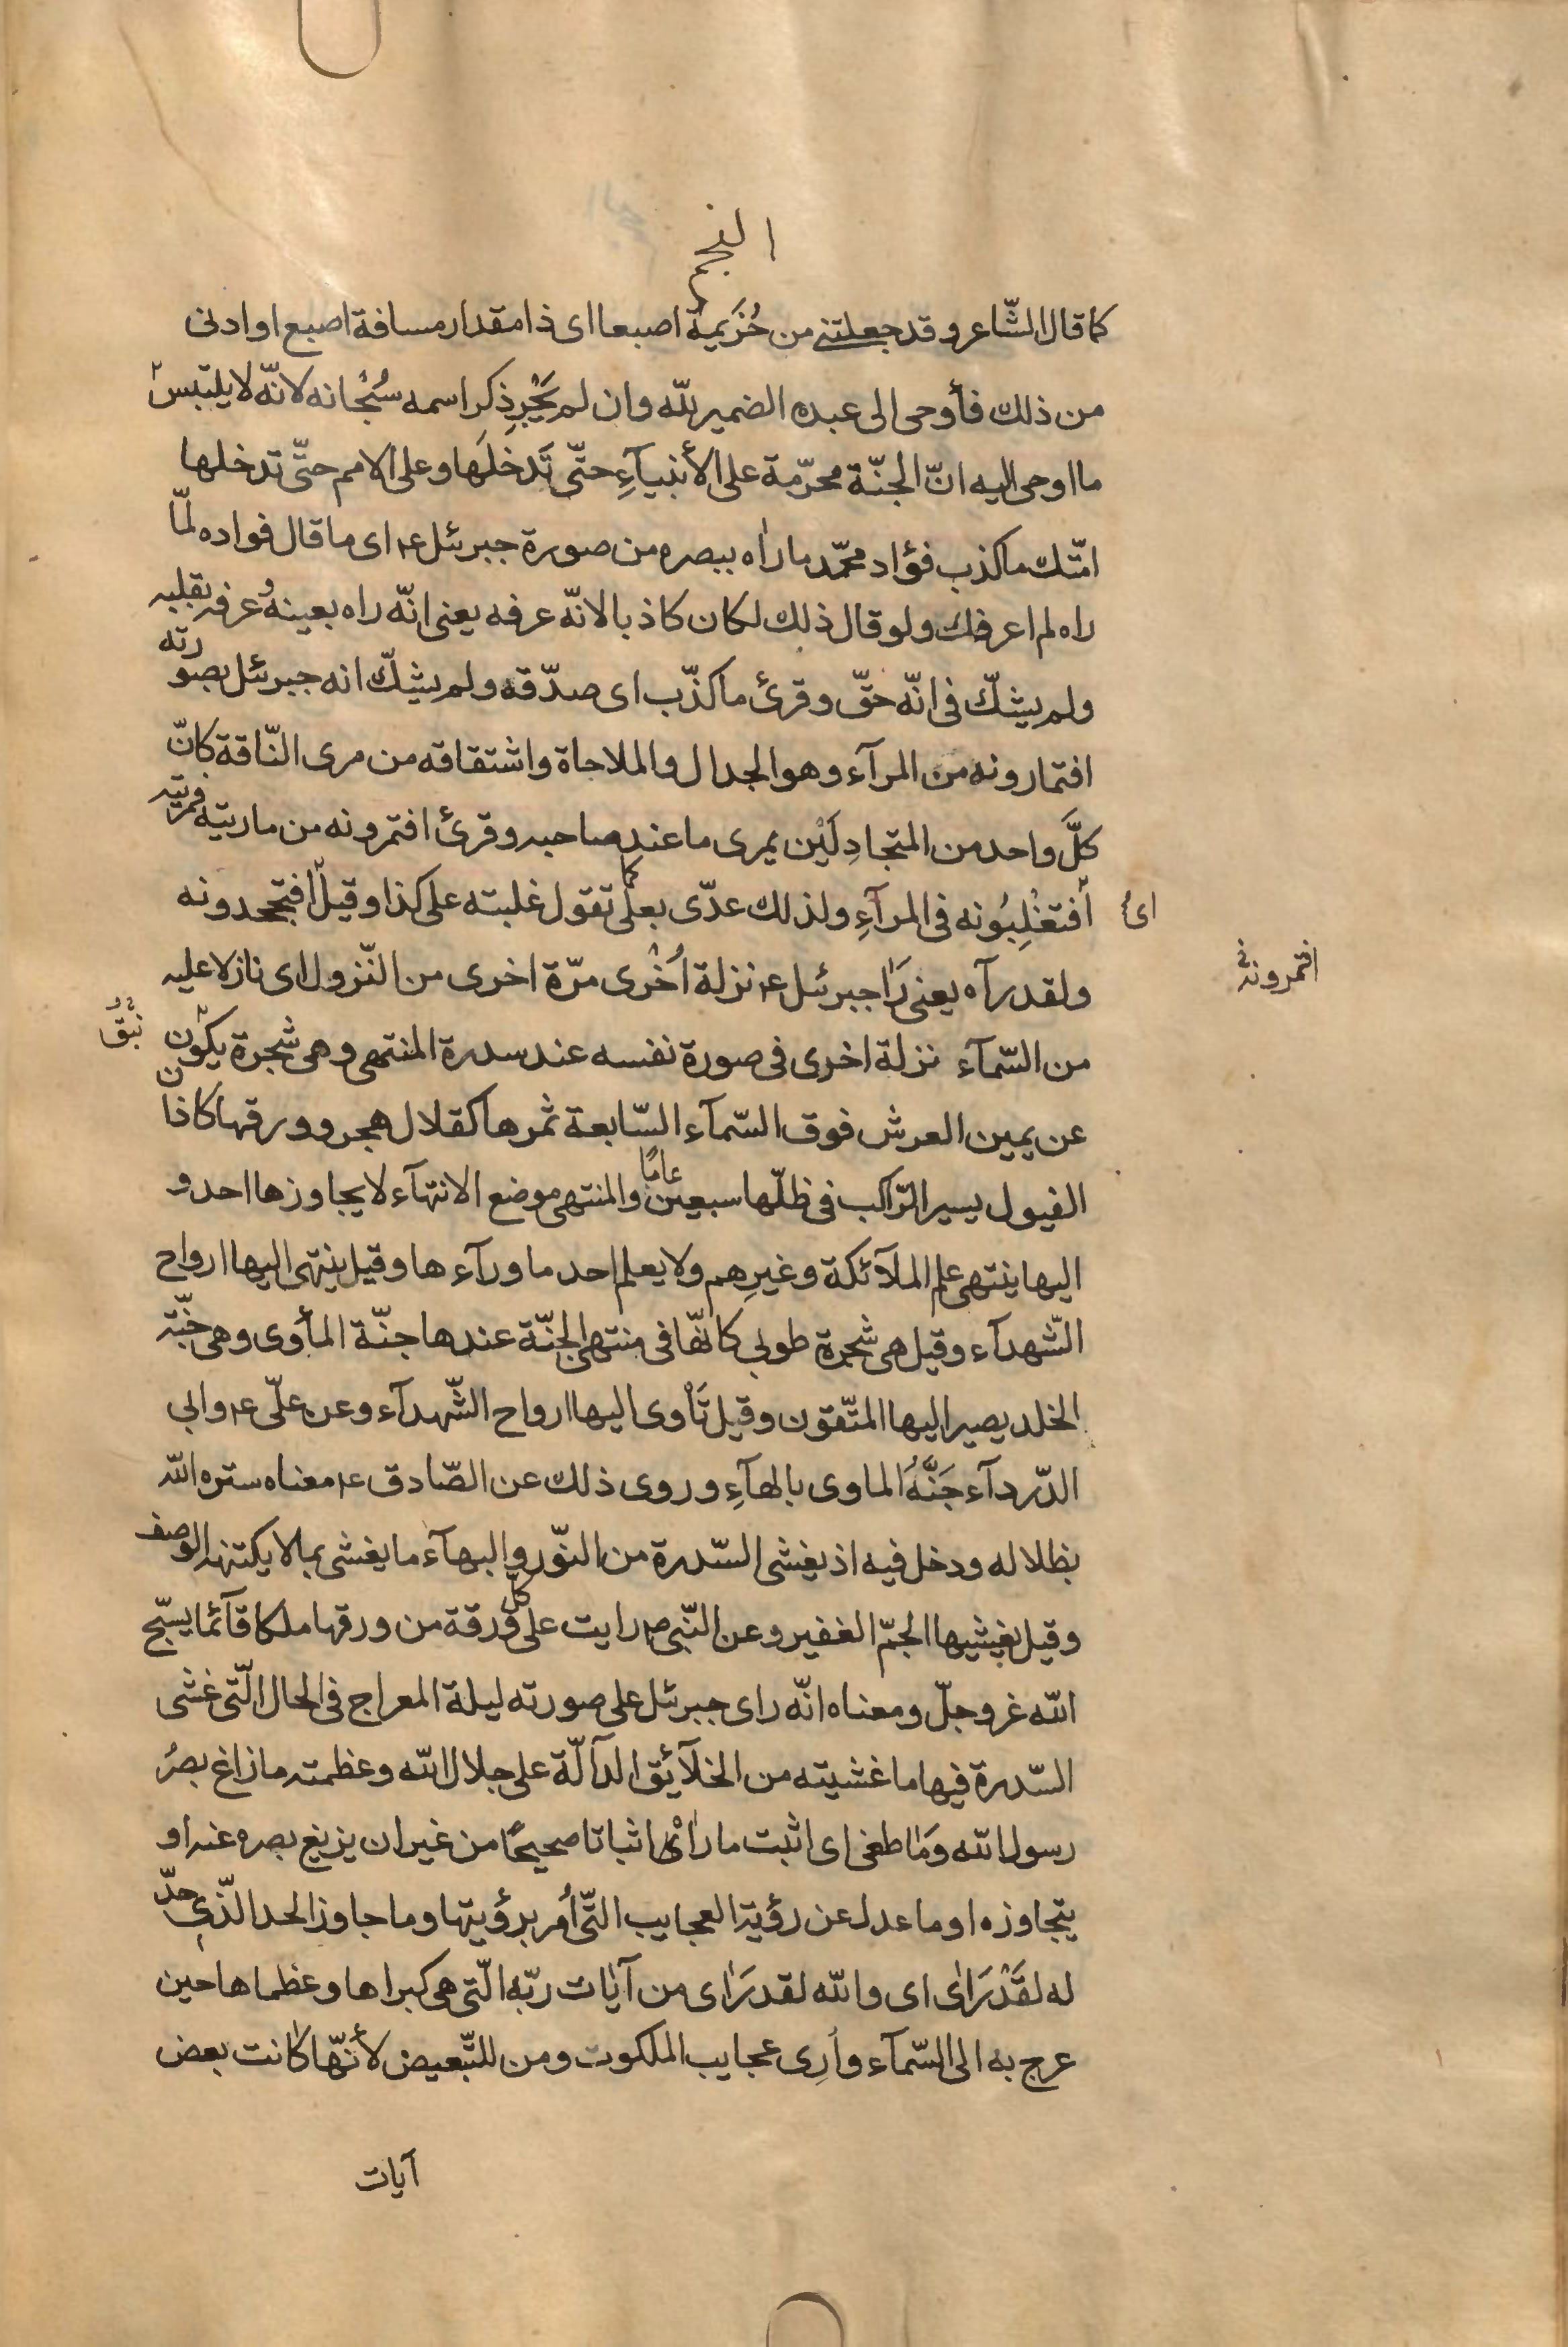 النجم
كما قال الشّاعر وقد جعلتني من خُزَيمة اصبعا اى ذا مقدار مسافة اصبع او ادنى
من ذلك فأوحى الى عبده الضمير للّه وان لم يَجْرِ ذِكر اسمه سُبْحانه لانّه لا يلتبس
ما اوحى اليه انّ الجنّة محرّمة على الأنبيآءِ حتّى تَدخلَها وعلى الامم حتّى تدخلها
امّتك ما كذب فؤاد محمّد ما رأه ببصره من صورة جبرئل ع اى ما قال فواده لمّا
راه لم اعرفك ولو قال ذلك لكان كاذبا لانّه عرفه يعنى انّه راه بعينه وعرفه بقلبه
ولم يشكّ فى انّه حقّ وقرئ ما كذّب اى صدّقه ولم يشكّ انه جبرئل بصورته
افتمارونه من المرآء وهو الجدال والملاجاة واشتقاقه من مرى النّاقة كانّ
كلَّ واحد من المتجادِلَيْن يمرى ما عند صاحبه وقرئ افتمرونه من ماريته فمريته
اى أفتغْلِبُونه فى المرآءِ ولذلك عدّى بعلى كما تقول غلبته على كذا وقيل أفتجحدونه
افتمرونه
ولقد رآه يعنى رَاٰ جبرئل ع نزلة اُخْرى مرّة اخرى من النّزول اى نازلا عليه
من السّمآء نزلة اخرى فى صورة نفسه عند سدرة المنتهى وهى شجرة يكون
نبق
عن يمين العرش فوق السّمآء السّابعة ثمرها كقلال هجر وورقها كاذان
الفيول يسير الرّاكب فى ظلّها سبعين عامًا والمنتهى موضع الانتهآء لا يجاوزها احد و
اليها ينتهى علم الملآئكة وغيرِهم ولا يعلم احد ما ورآءها وقيل ينتهى اليها ارواح
الشّهدآء وقيل هى شجرة طوبى كانّها فى منتهى الجنّة عندها جنّة المأوى وهى جنّة
الخلد يصير اليها المتّقون وقيل تَأوى اليها ارواح الشّهدآء وعن علّى ع وابى
الدّردآء جَنَّهُ الماوى بالهآءِ وروى ذلك عن الصّادق ع معناه ستره اللّه
بظلاله ودخل فيه اذ يغشى السّدرة من النّور والبهآء ما يغشى بما لا يكتنهه الوصف
وقيل يغشيها الجمّ الغفير وعن النّبى ص رايت على كلّ ورقة من ورقها ملكا قآئما يسبّح
اللّه عز وجلّ ومعناه انّه راى جبرئل على صورته ليلة المعراج فى الحال الّتى غشى
السّدرة فيها ما غشيته من الخلآئق الدآلّة على جلال اللّه وعظمته ما زاغ بصرُ
رسول اللّه وَمٰا طغى اى اثبت ما رأى اثباتا صحيحًا من غير ان يزيغ بصره عنه او
يتجاوزه او ما عدل عن رؤية العجايب الّتى اُمر برؤيتها وما جاوز الحد الّذى حدّ
له لقَدْ رَاٰى اى واللّه لقد رَاٰى من آيٰات ربّه الّتى هى كبراها وعظماها حين
عرج به الى السّمآء واُرِى عجايب الملكوت ومن للتّبعيض لأنّها كانت بعض
آيات